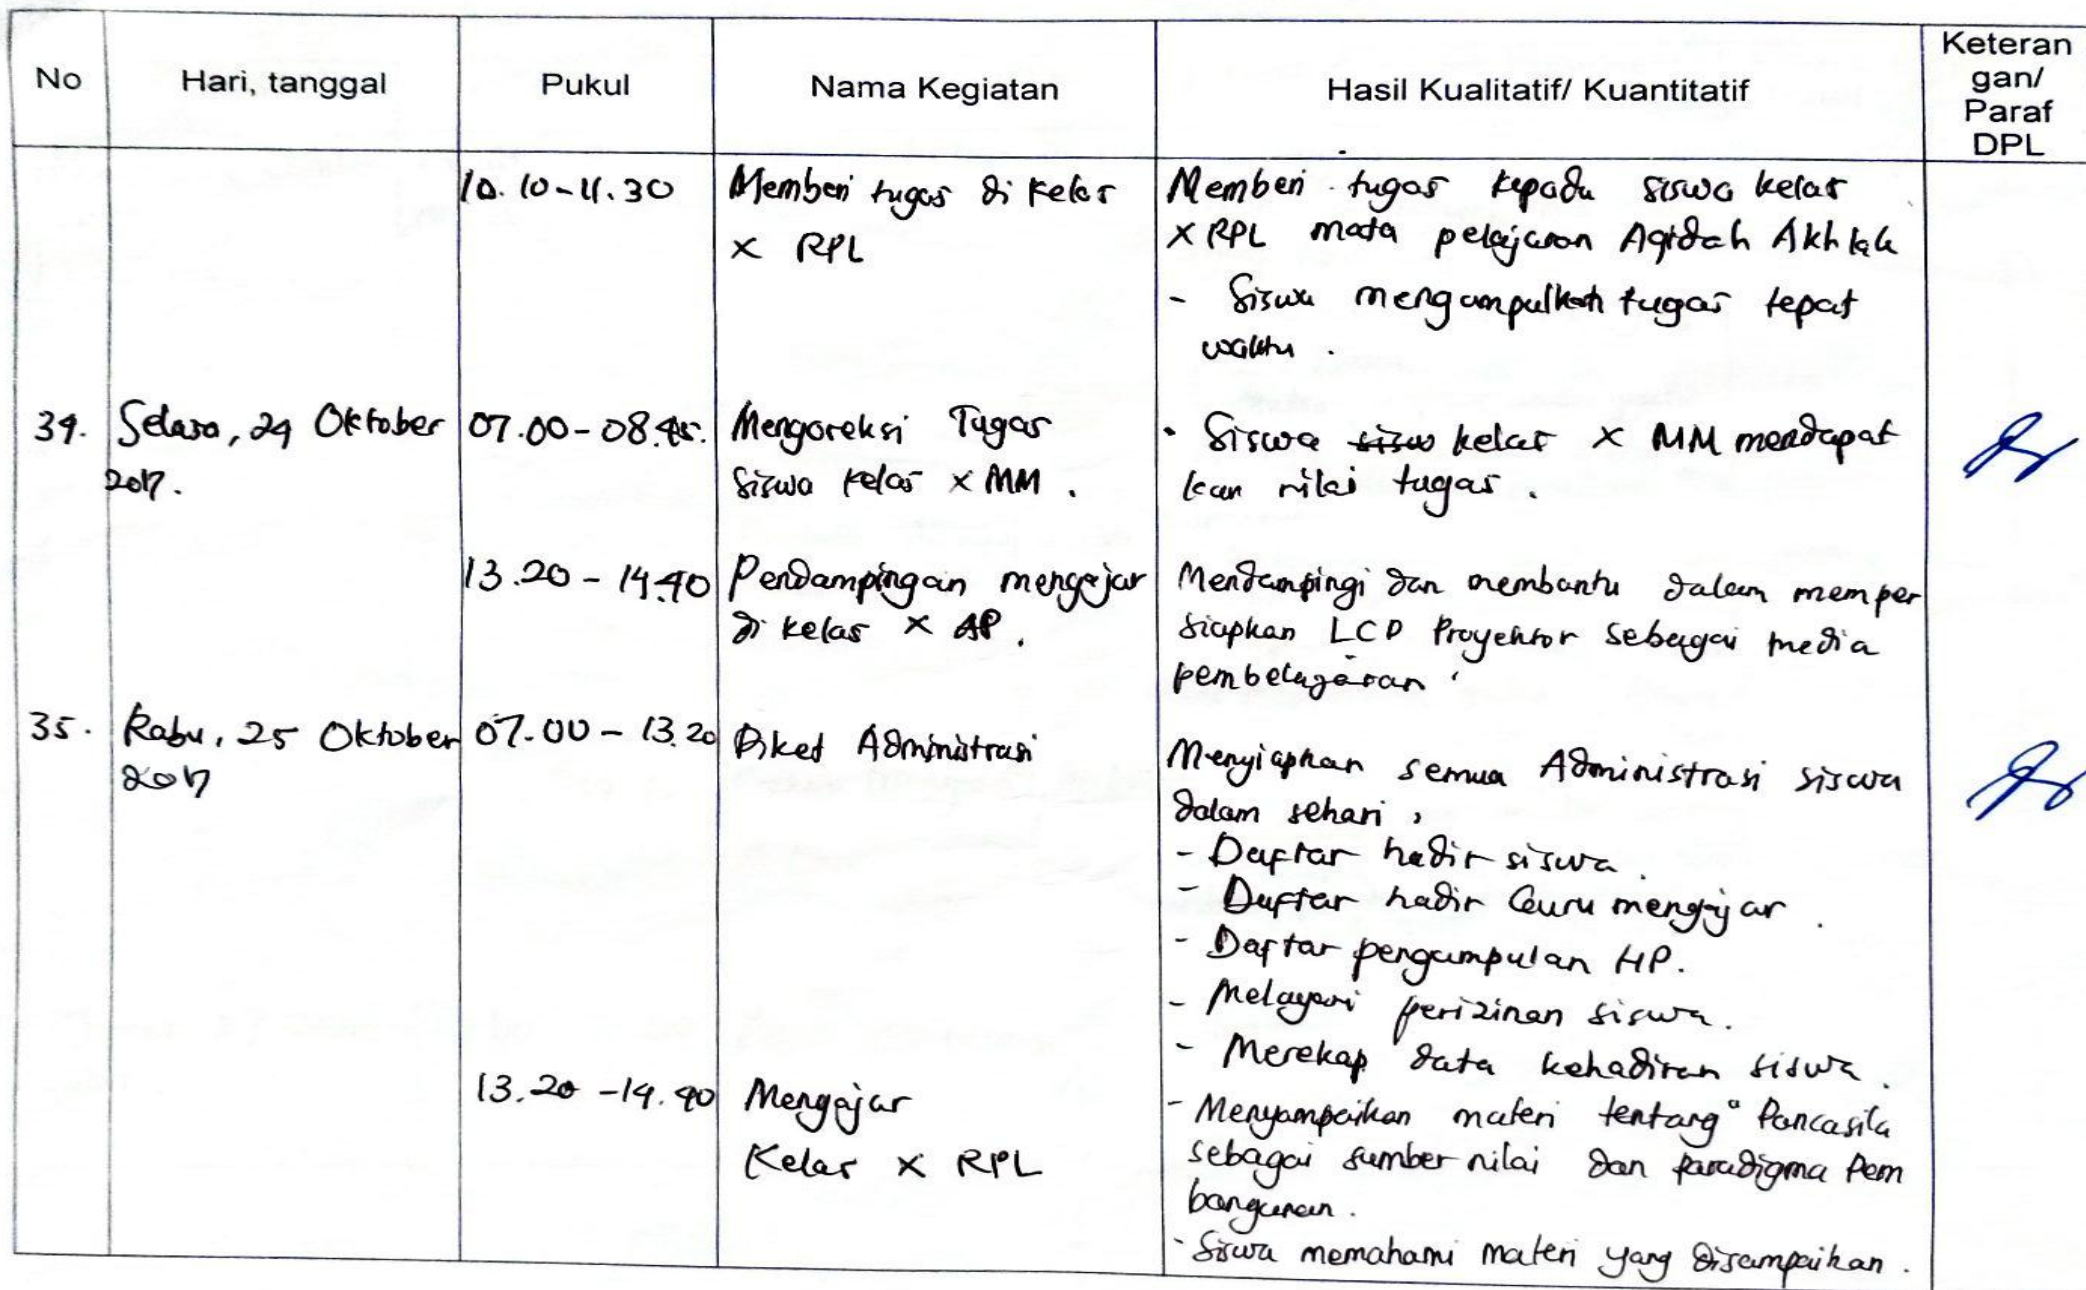 No
Hari, tanggal
Pukul
Nama Kegiatan
Hasil Kualitatif/ Kuantitatif
Keteran
gan/
Paraf
DPL
10.10-11.30
Memberi tugas di kelas
X RPL
Memberi tugas kepada siswa kelas
X RPL mata pelajaran Aqidah Akhlak
- Siswa mengumpulkan tugas tepat
waktu.
34.
Selasa, 24 Oktober
2017.
07.00-08.45.
Mengoreksi Tugas
siswa kelas X MM.
- Siswa kelas X MM mendapat
kan nilai tugas.
13.20-14.40
Pendampingan mengajar
di kelas X AP.
Mendampingi dan membantu dalam memper
siapkan LCD Proyektor sebagai media
pembelajaran.
35.
Rabu, 25 Oktober
2017
07.00-13.20
Piket Administrasi
Menyiapkan semua Administrasi siswa
dalam sehari,
- Daftar hadir siswa.
- Daftar hadir Guru mengajar.
- Daftar pengumpulan HP.
- Melayani perizinan siswa.
- Merekap data kehadiran siswa.
13.20-14.40
Mengajar
Kelas X RPL
- Menyampaikan materi tentang "Pancasila
sebagai sumber nilai dan paradigma Pem
bangunan.
- Siswa memahami materi yang disampaikan.